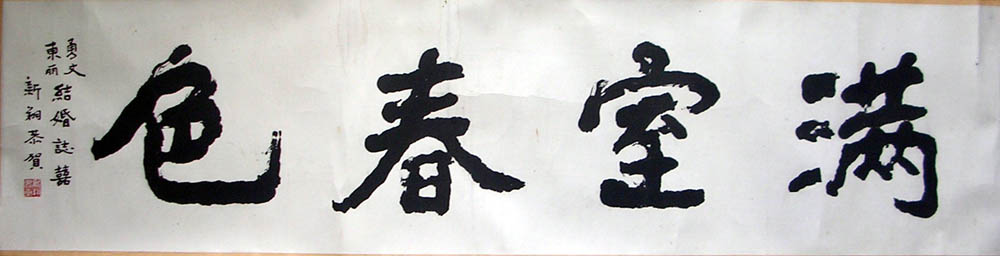 满室春色
勇文
东丽
結婚誌囍
新翔恭賀